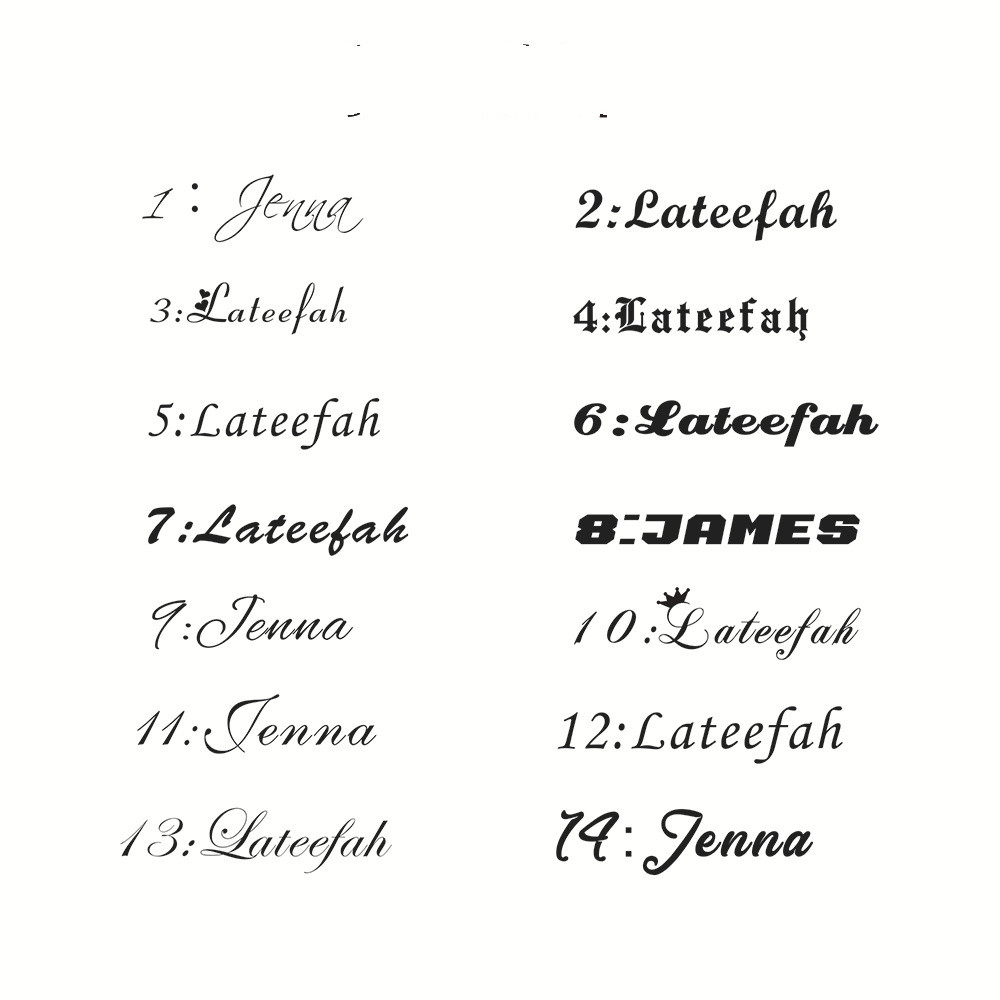 1: Jenna
2:Lateefah
3:Lateefah
4:Lateefah
5:Lateefah
6:Lateefah
7:Lateefah
8:JAMES
9:Jenna
10:Lateefah
11:Jenna
12:Lateefah
13:Lateefah
14:Jenna